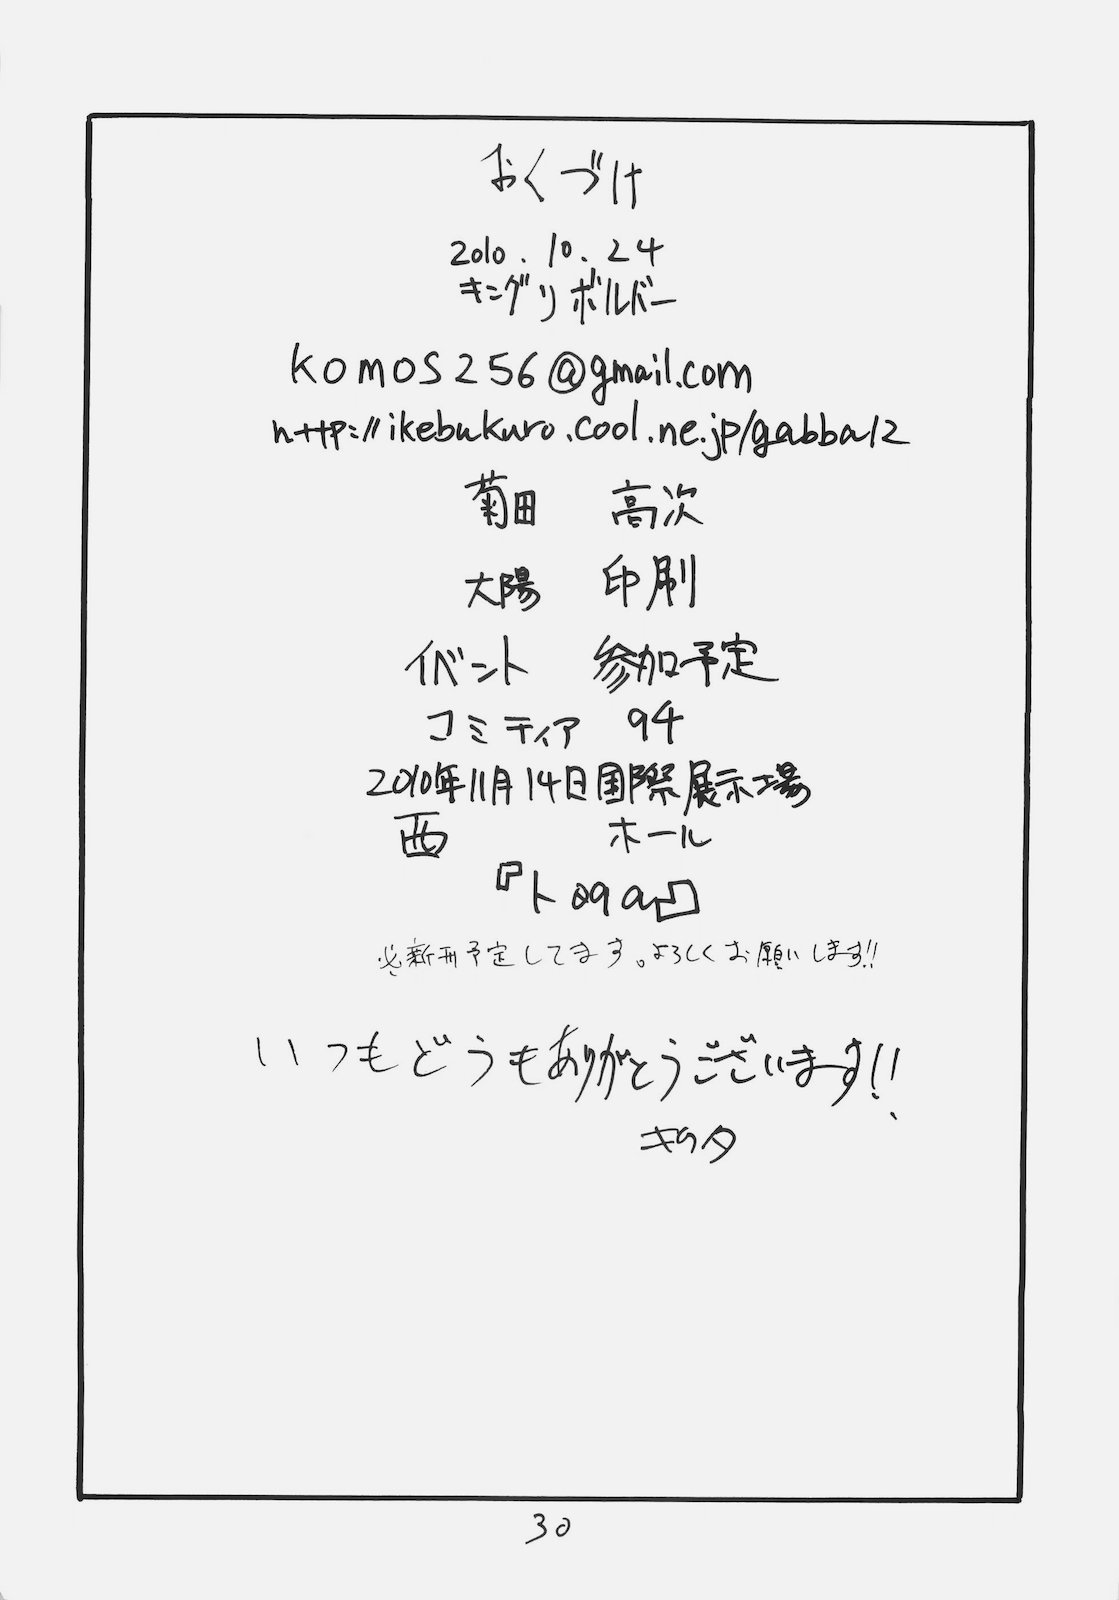 おくづけ
2010.10.24
キングリボルバー
komos256@gmail.com
http://ikebukuro.cool.ne.jp/gabba12
菊田 高次
大陽 印刷
イベント 参加予定
コミティア 94
2010年11月14日国際展示場
西 ホール
『ト09a』
※新刊予定してます。よろしくお願いします!!
いつもどうもありがとうございます!!
キクタ
30